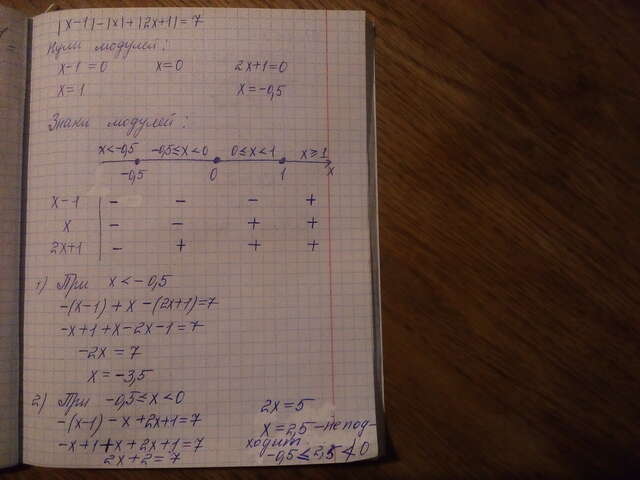 |x-1|-|x|+|2x+1|=7
Нули модулей:
x-1=0 x=0 2x+1=0
x=1 x=-0,5
Знаки модулей:
x<-0,5 -0,5≤x<0 0≤x<1 x≥1
-0,5 0 1 x
x-1 - - - +
x - - + +
2x+1 - + + +
1) При x<-0,5
-(x-1)+x-(2x+1)=7
-x+1+x-2x-1=7
-2x=7
x=-3,5
2) При -0,5≤x<0
-(x-1)-x+2x+1=7
-x+1+x+2x+1=7
2x+2=7
2x=5
x=2,5-непод-
ходит.
-0,5≤2,5≮0